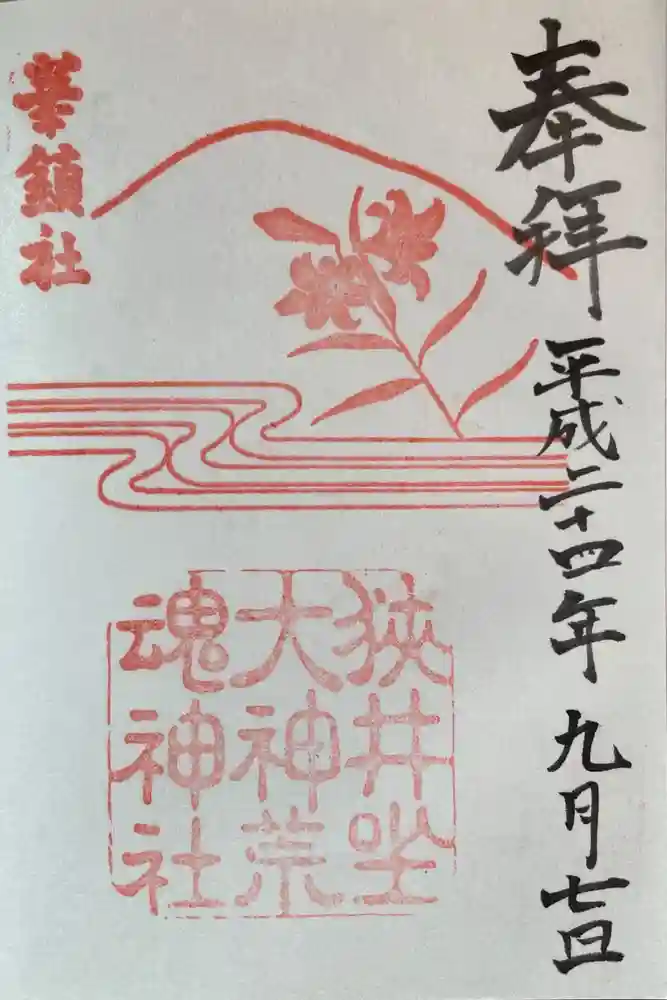 奉拝
平成二十四年九月七日
華鎮社
狭井坐
大神荒
魂神社